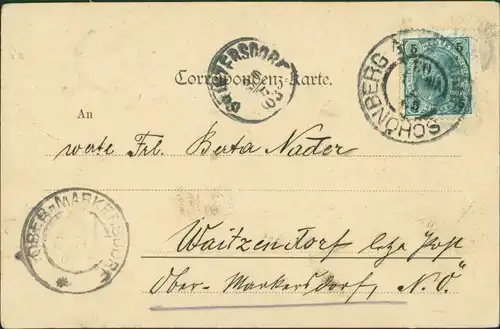 5 5
SCHÖNBERG
Correspondenz-Karte.
An
werte Frl. Berta Nader
OBER-MARKERSDORF
Waitzendorf letzte Post
Ober-Markersdorf, N. Ö.